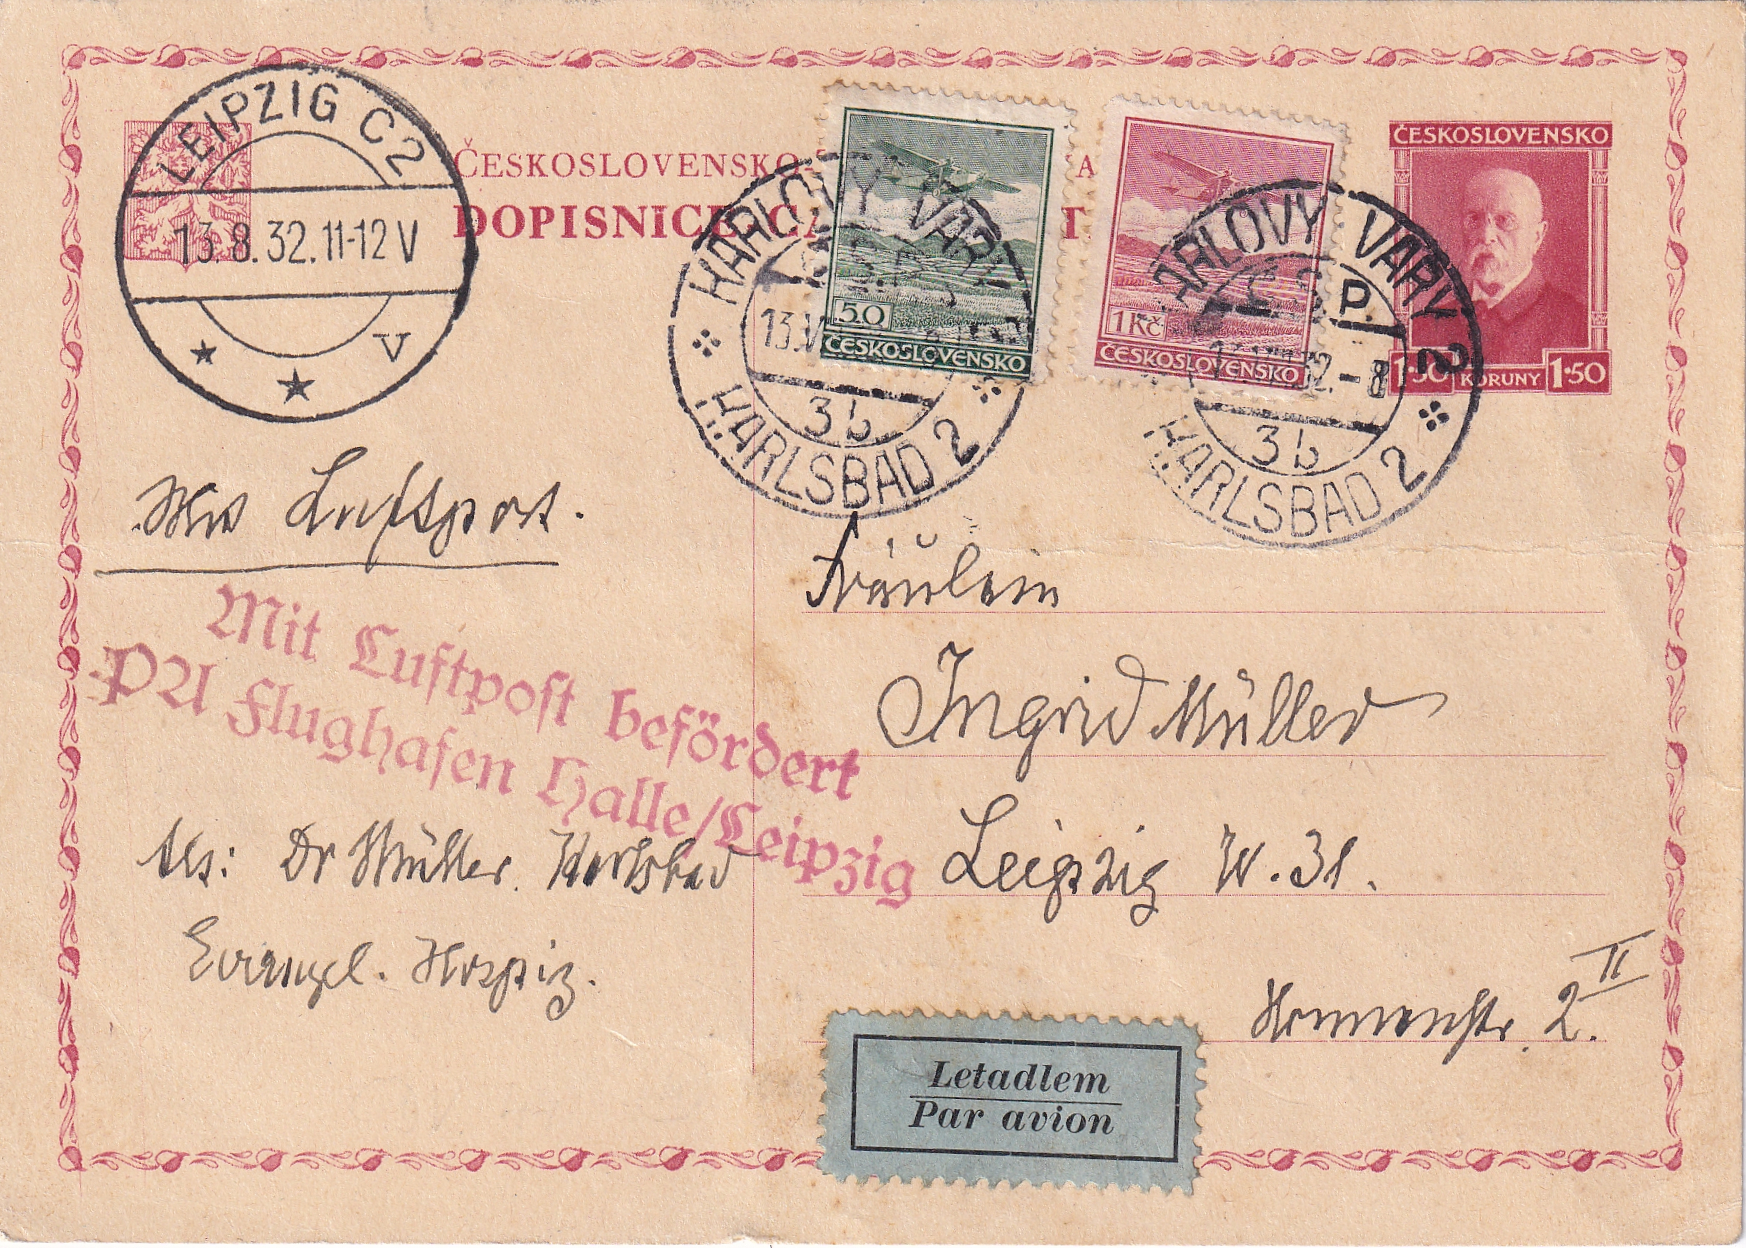 LEIPZIG C2
13.8.32.11-12 V
V
ČESKOSLOVENSKO
A
DOPISNICE CA
T
50
ČESKOSLOVENSKO
1 Kč
ČESKOSLOVENSKO
ČESKOSLOVENSKO
1·50 KORUNY 1·50
KARLOVY VARY
13.V
3b
KARLSBAD 2
KARLOVY VARY 2
P.
32.-8
3b
KARLSBAD 2
Mit Luftpost.
Mit Luftpost befördert
PA Flughafen Halle/Leipzig
Fräulein
Ingrid Müller
Leipzig W. 31.
2. II
Abs: Dr Müller. Karlsbad
Evangel. Hospiz.
Letadlem
Par avion